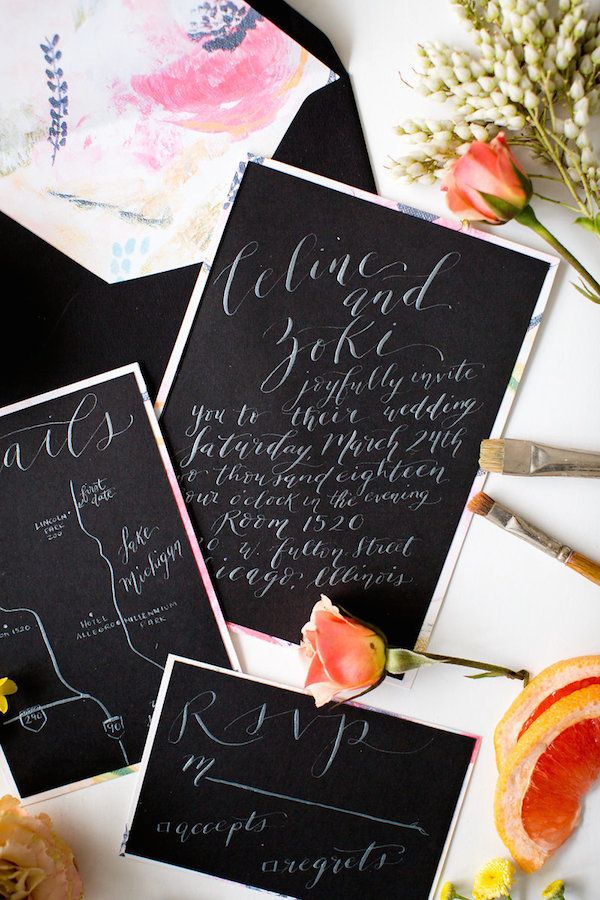 Celine
and
Zoki
joyfully invite
you to their wedding
Saturday March 24th
thousand eighteen
o'clock in the evening
Room 1520
W. Fulton Street
Illinois
ails
first
date
LINCOLN
PARK
ZOO
Lake
Michigan
HOTEL
ALLEGRO
MILLENNIUM
PARK
1520
290
90
Rsvp
M
accepts
regrets